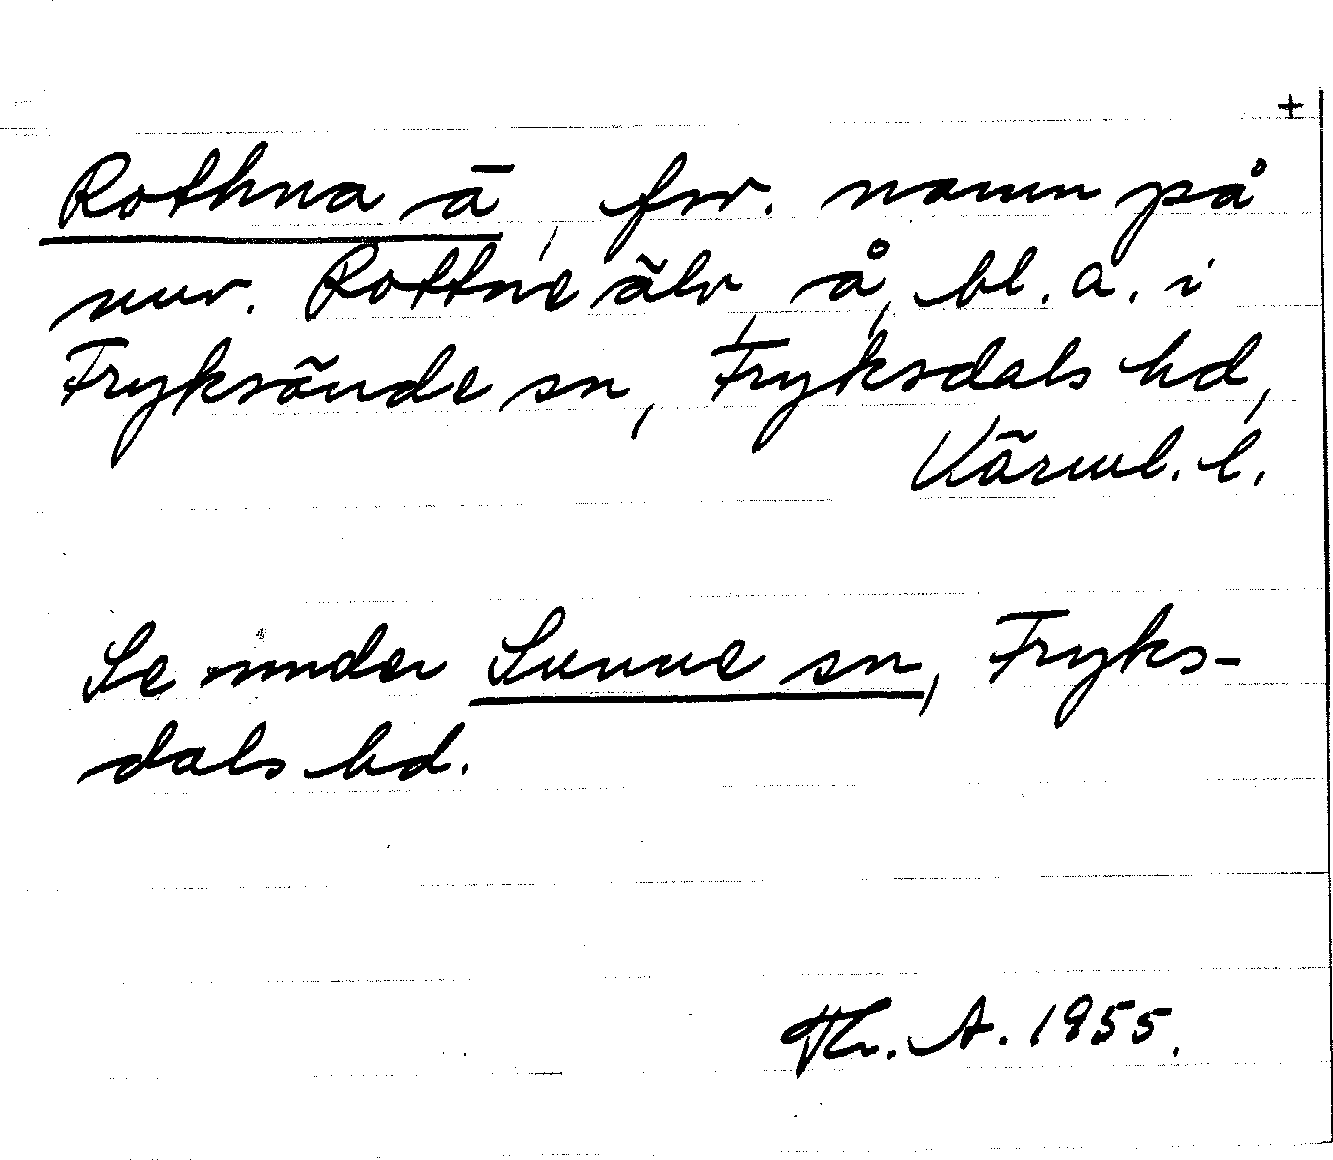 +
Rothna ā, fnv. namn på
nuv. Rottne älv, å, bl. a. i
Fryksände sn, Fryksdals hd,
Värml. l.
Se under Sunne sn, Fryks-
dals hd.
Th. A. 1955.